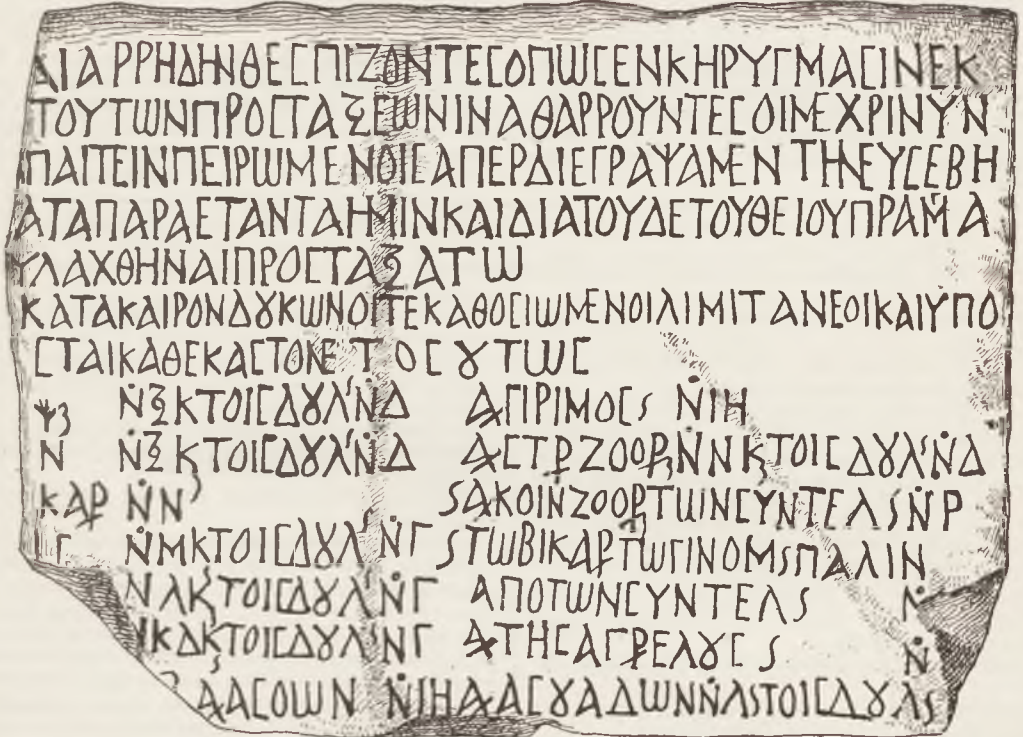 ΔΙΑΡΡΗΔΗΝΘΕϹΠΙΖΟΝΤΕϹΟΠΩϹΕΝΚΗΡΥΓΜΑϹΙΝΕΚ
ΤΟΥΤΩΝΠΡΟϹΤΑΞΕΩΝΙΝΑΘΑΡΡΟΥΝΤΕϹΟΙΜΕΧΡΙΝΥΝ
ΠΑΙΤΕΙΝΠΕΙΡΩΜΕΝΟΙϹΑΠΕΡΔΙΕΓΡΑΨΑΜΕΝΤΗΝΕΥϹΕΒΗ
ΑΤΑΠΑΡΑΕΤΑΝΤΑΗΜΙΝΚΑΙΔΙΑΤΟΥΔΕΤΟΥΘΕΙΟΥΠΡΑΜΑ
ΥΛΑΧΘΗΝΑΙΠΡΟϹΤΑΞΑΤΩ
ΚΑΤΑΚΑΙΡΟΝΔȢΚΩΝΟΙΤΕΚΑΘΟϹΙΩΜΕΝΟΙΛΙΜΙΤΑΝΕΟΙΚΑΙΥΠΟ
ϹΤΑΙΚΑΘΕΚΑϹΤΟΝΕΤΟϹȢΤΩϹ
ṄΞΚΤΟΙϹΔȢΛʹṄΔ ΑΠΡΙΜΟϹS ṄΙΗ
Ν ṄΞΚΤΟΙϹΔȢΛʹṄΔ ΑϹΤΡΖΟΟΡṄΝΚΤΟΙϹΔȢΛʹṄΔ
ΚΑΡ ṄΝ SΑΚΟΙΝΖΟΟΡΤΩΝϹΥΝΤΕΛSṄΡ
Γ ṄΜΚΤΟΙϹΔȢΛʹṄΓ SΤΩΒΙΚΑΡΤΩΓΙΝΟΜSΠΑΛΙΝ
ΝΛΚΤΟΙϹΔȢΛʹṄΓ ΑΠΟΤΩΝϹΥΝΤΕΛS Ṅ
ΚΔΚΤΟΙϹΔȢΛʹṄΓ ΑΤΗϹΑΓΡΕΛȢϹS Ṅ
ΑΑϹΟΩΝ ṄΙΗΑΑϹȢΑΔΩΝṄΛSΤΟΙϹΔȢΛS